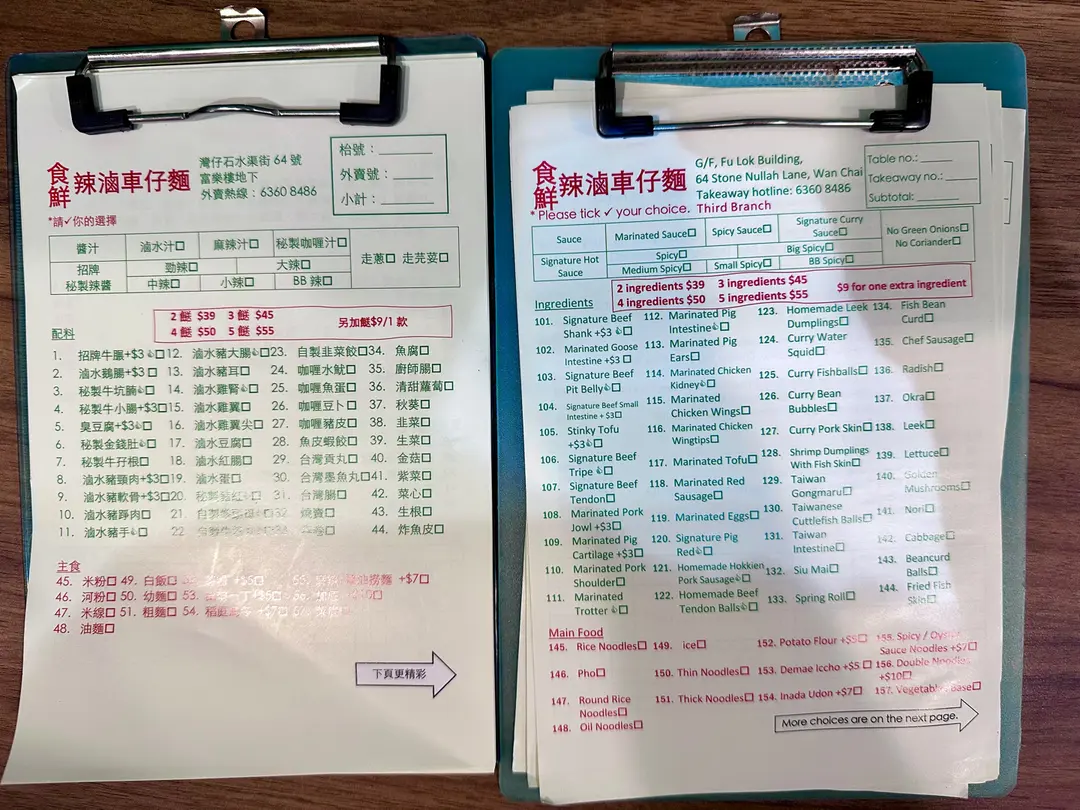 食鮮 辣滷車仔麵
灣仔石水渠街 64 號
富樂樓地下
外賣熱線：6360 8486
枱號：
外賣號：
小計：
*請✓你的選擇
醬汁 滷水汁□ 麻辣汁□ 秘製咖喱汁□ 走蔥□ 走芫荽□
招牌秘製辣醬 勁辣□ 大辣□
中辣□ 小辣□ BB 辣□
2 餸 $39 3 餸 $45
4 餸 $50 5 餸 $55
另加餸$9/1 款
配料
1. 招牌牛𦟌+$3□ 12. 滷水豬大腸□ 23. 自製韭菜餃□ 34. 魚腐□
2. 滷水鵝腸+$3□ 13. 滷水豬耳□ 24. 咖喱水魷□ 35. 廚師腸□
3. 秘製牛坑腩□ 14. 滷水雞腎□ 25. 咖喱魚蛋□ 36. 清甜蘿蔔□
4. 秘製牛小腸+$3□ 15. 滷水雞翼□ 26. 咖喱豆卜□ 37. 秋葵□
5. 臭豆腐+$3□ 16. 滷水雞翼尖□ 27. 咖喱豬皮□ 38. 韭菜□
6. 秘製金錢肚□ 17. 滷水豆腐□ 28. 魚皮蝦餃□ 39. 生菜□
7. 秘製牛孖根□ 18. 滷水紅腸□ 29. 台灣貢丸□ 40. 金菇□
8. 滷水豬頸肉+$3□ 19. 滷水蛋□ 30. 台灣墨魚丸□ 41. 紫菜□
9. 滷水豬軟骨+$3□ 20. 秘製豬紅□ 31. 台灣腸□ 42. 菜心□
10. 滷水豬踭肉□ 21. 32. 燒賣□ 43. 生根□
11. 滷水豬手□ 22. 44. 炸魚皮□
主食
45. 米粉□ 49. 白飯□ +$5□ 撈麵 +$7□
46. 河粉□ 50. 幼麵□ 53.
47. 米線□ 51. 粗麵□ 54. 稻庭 +$7□
48. 油麵□
下頁更精彩
食鮮 辣滷車仔麵
G/F, Fu Lok Building,
64 Stone Nullah Lane, Wan Chai
Takeaway hotline: 6360 8486
Third Branch
Table no.:
Takeaway no.:
Subtotal:
* Please tick ✓ your choice.
Sauce Marinated Sauce□ Spicy Sauce□ Signature Curry Sauce□ No Green Onions□ No Coriander□
Signature Hot Sauce Spicy□ Big Spicy□
Medium Spicy□ Small Spicy□ BB Spicy□
2 ingredients $39 3 ingredients $45
4 ingredients $50 5 ingredients $55
$9 for one extra ingredient
Ingredients
101. Signature Beef Shank +$3 □
102. Marinated Goose Intestine +$3 □
103. Signature Beef Pit Belly□
104. Signature Beef Small Intestine + $3□
105. Stinky Tofu +$3□
106. Signature Beef Tripe □
107. Signature Beef Tendon□
108. Marinated Pork Jowl +$3□
109. Marinated Pig Cartilage +$3□
110. Marinated Pork Shoulder□
111. Marinated Trotter □
112. Marinated Pig Intestine□
113. Marinated Pig Ears□
114. Marinated Chicken Kidney□
115. Marinated Chicken Wings□
116. Marinated Chicken Wingtips□
117. Marinated Tofu□
118. Marinated Red Sausage□
119. Marinated Eggs□
120. Signature Pig Red□
121. Homemade Hokkien Pork Sausage□
122. Homemade Beef Tendon Balls□
123. Homemade Leek Dumplings□
124. Curry Water Squid□
125. Curry Fishballs□
126. Curry Bean Bubbles□
127. Curry Pork Skin□
128. Shrimp Dumplings With Fish Skin□
129. Taiwan Gongmaru□
130. Taiwanese Cuttlefish Balls□
131. Taiwan Intestine□
132. Siu Mai□
133. Spring Roll□
134. Fish Bean Curd□
135. Chef Sausage□
136. Radish□
137. Okra□
138. Leek□
139. Lettuce□
140. Golden Mushrooms□
141. Nori□
142. Cabbage□
143. Beancurd Balls□
144. Fried Fish Skin□
Main Food
145. Rice Noodles□ 149. ice□ 152. Potato Flour +$5□ 155. Spicy / Oyster Sauce Noodles +$7□
146. Pho□ 150. Thin Noodles□ 153. Demae Iccho +$5□ 156. Double Noodles +$10□
147. Round Rice Noodles□ 151. Thick Noodles□ 154. Inada Udon +$7□ 157. Vegetables Base□
148. Oil Noodles□
More choices are on the next page.